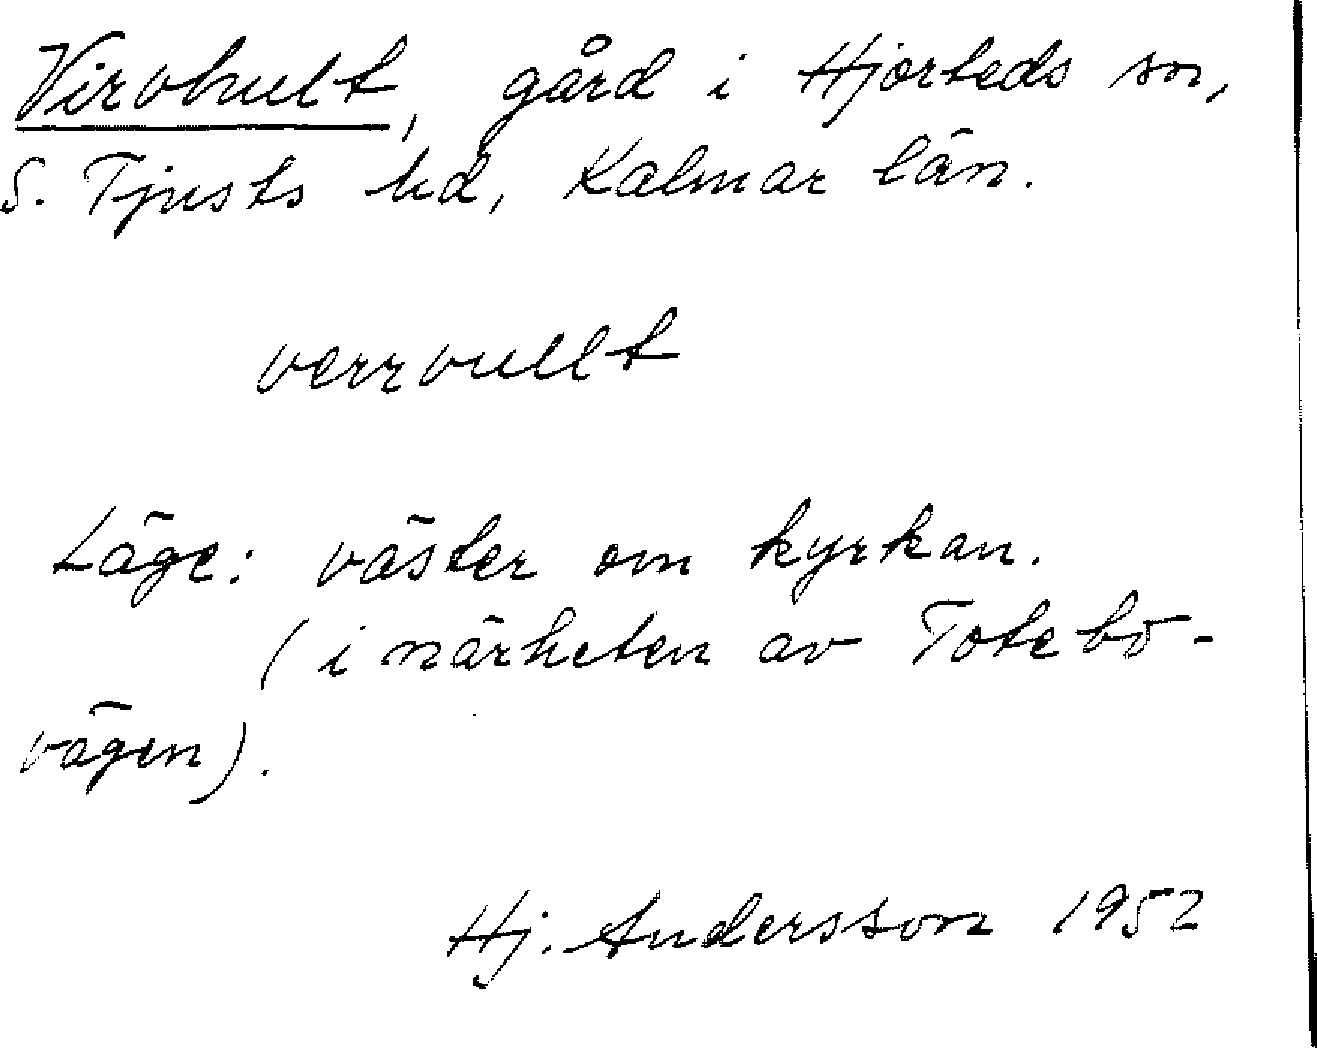 Virvhult, gård i Hjorteds sn,
S. Tjusts hd, Kalmar län.
verrvullt
Läge: väster om kyrkan.
(i närheten av Totebo-
vägen).
Hj. Andersson 1952